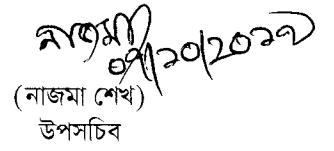 নাজমা
০৭/১০/২০১৭
(নাজমা শেখ)
উপসচিব